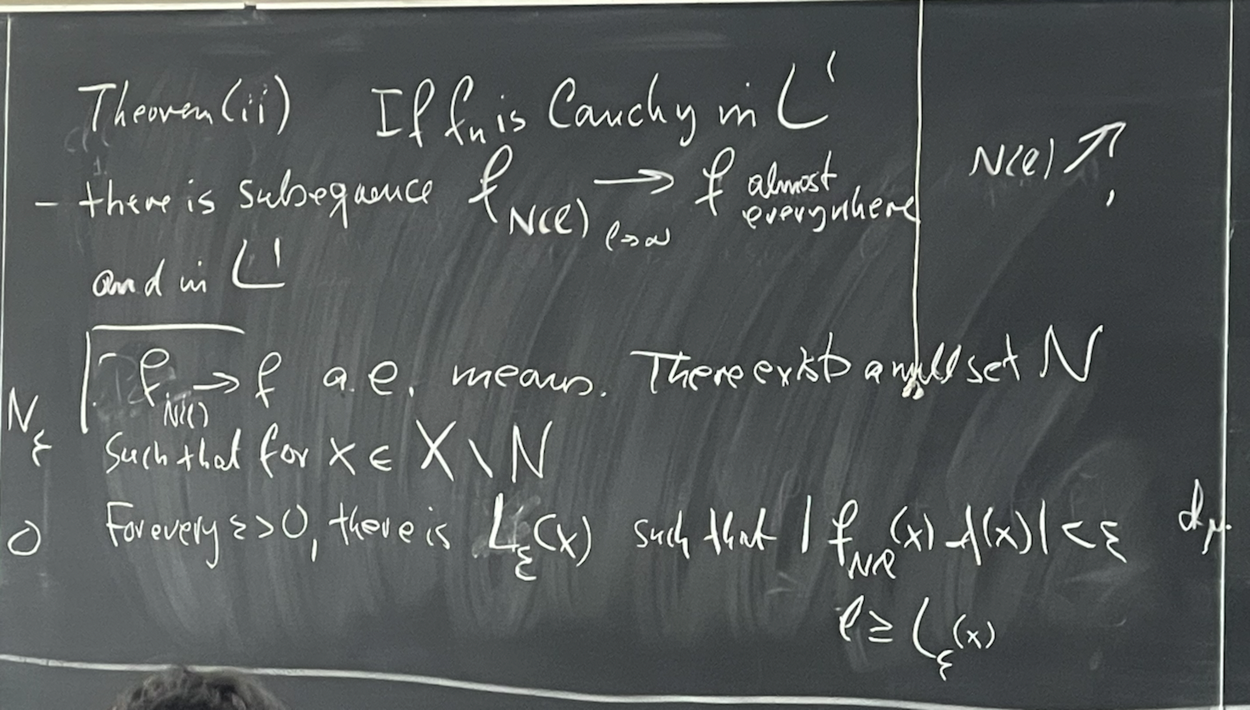 Theorem (ii) If fₙ is Cauchy in L¹
- there is subsequence f_{N(ℓ)} → f almost everywhere
ℓ→∞
and in L¹
N(ℓ) ↗,
f_{N(ℓ)} → f a.e. means. There exists a null set N
such that for x ∈ X \ N
For every ε>0, there is L_ε(x) such that | f_{Nℓ}(x) - f(x)| < ε
ℓ ≥ L_ε(x)
N_ε
0
dμ